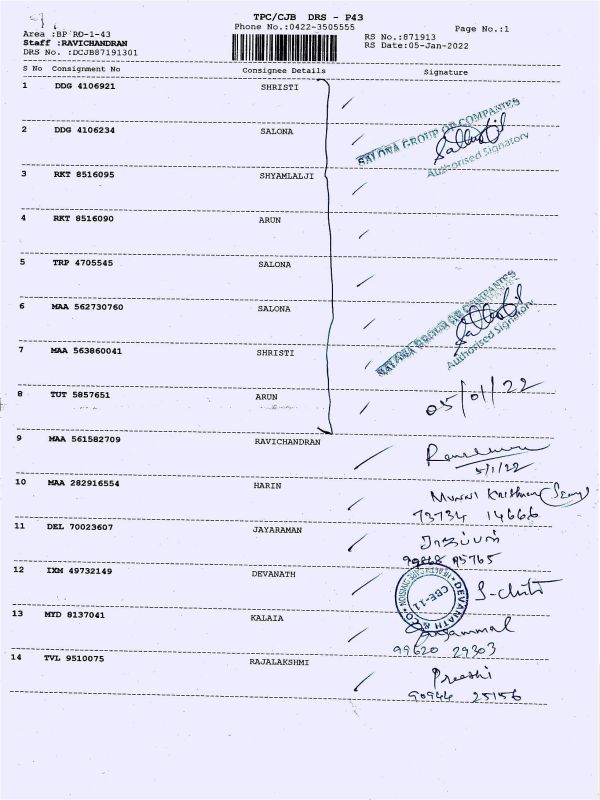 TPC/CJB DRS - P43
Phone No.:0422-3505555
Page No.:1
Area :BP RO-1-43
RS No.:871913
Staff :RAVICHANDRAN
RS Date:05-Jan-2022
DRS No. :DCJB87191301
S No Consignment No Consignee Details Signature
1 DDG 4106921 SHRISTI
2 DDG 4106234 SALONA
SALONA GROUP OF COMPANIES
Authorised Signatory
3 RKT 8516095 SHYAMLALJI
4 RKT 8516090 ARUN
5 TRP 4705545 SALONA
6 MAA 562730760 SALONA
SALONA GROUP OF COMPANIES
Authorised Signatory
7 MAA 563860041 SHRISTI
8 TUT 5857651 ARUN
05/01/22
9 MAA 561582709 RAVICHANDRAN
5/1/22
10 MAA 282916554 HARIN
73734 14666
11 DEL 70023607 JAYARAMAN
95765
12 IXM 49732149 DEVANATH
DEVANATH & CO
CBE-11
13 MYD 8137041 KALAIA
99620 29303
14 TVL 9510075 RAJALAKSHMI
Preethi
90944 25156